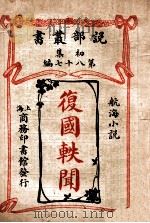 說部叢書
初集
第八十七編
航海小說
復國軼聞
上海
商務印書館發行